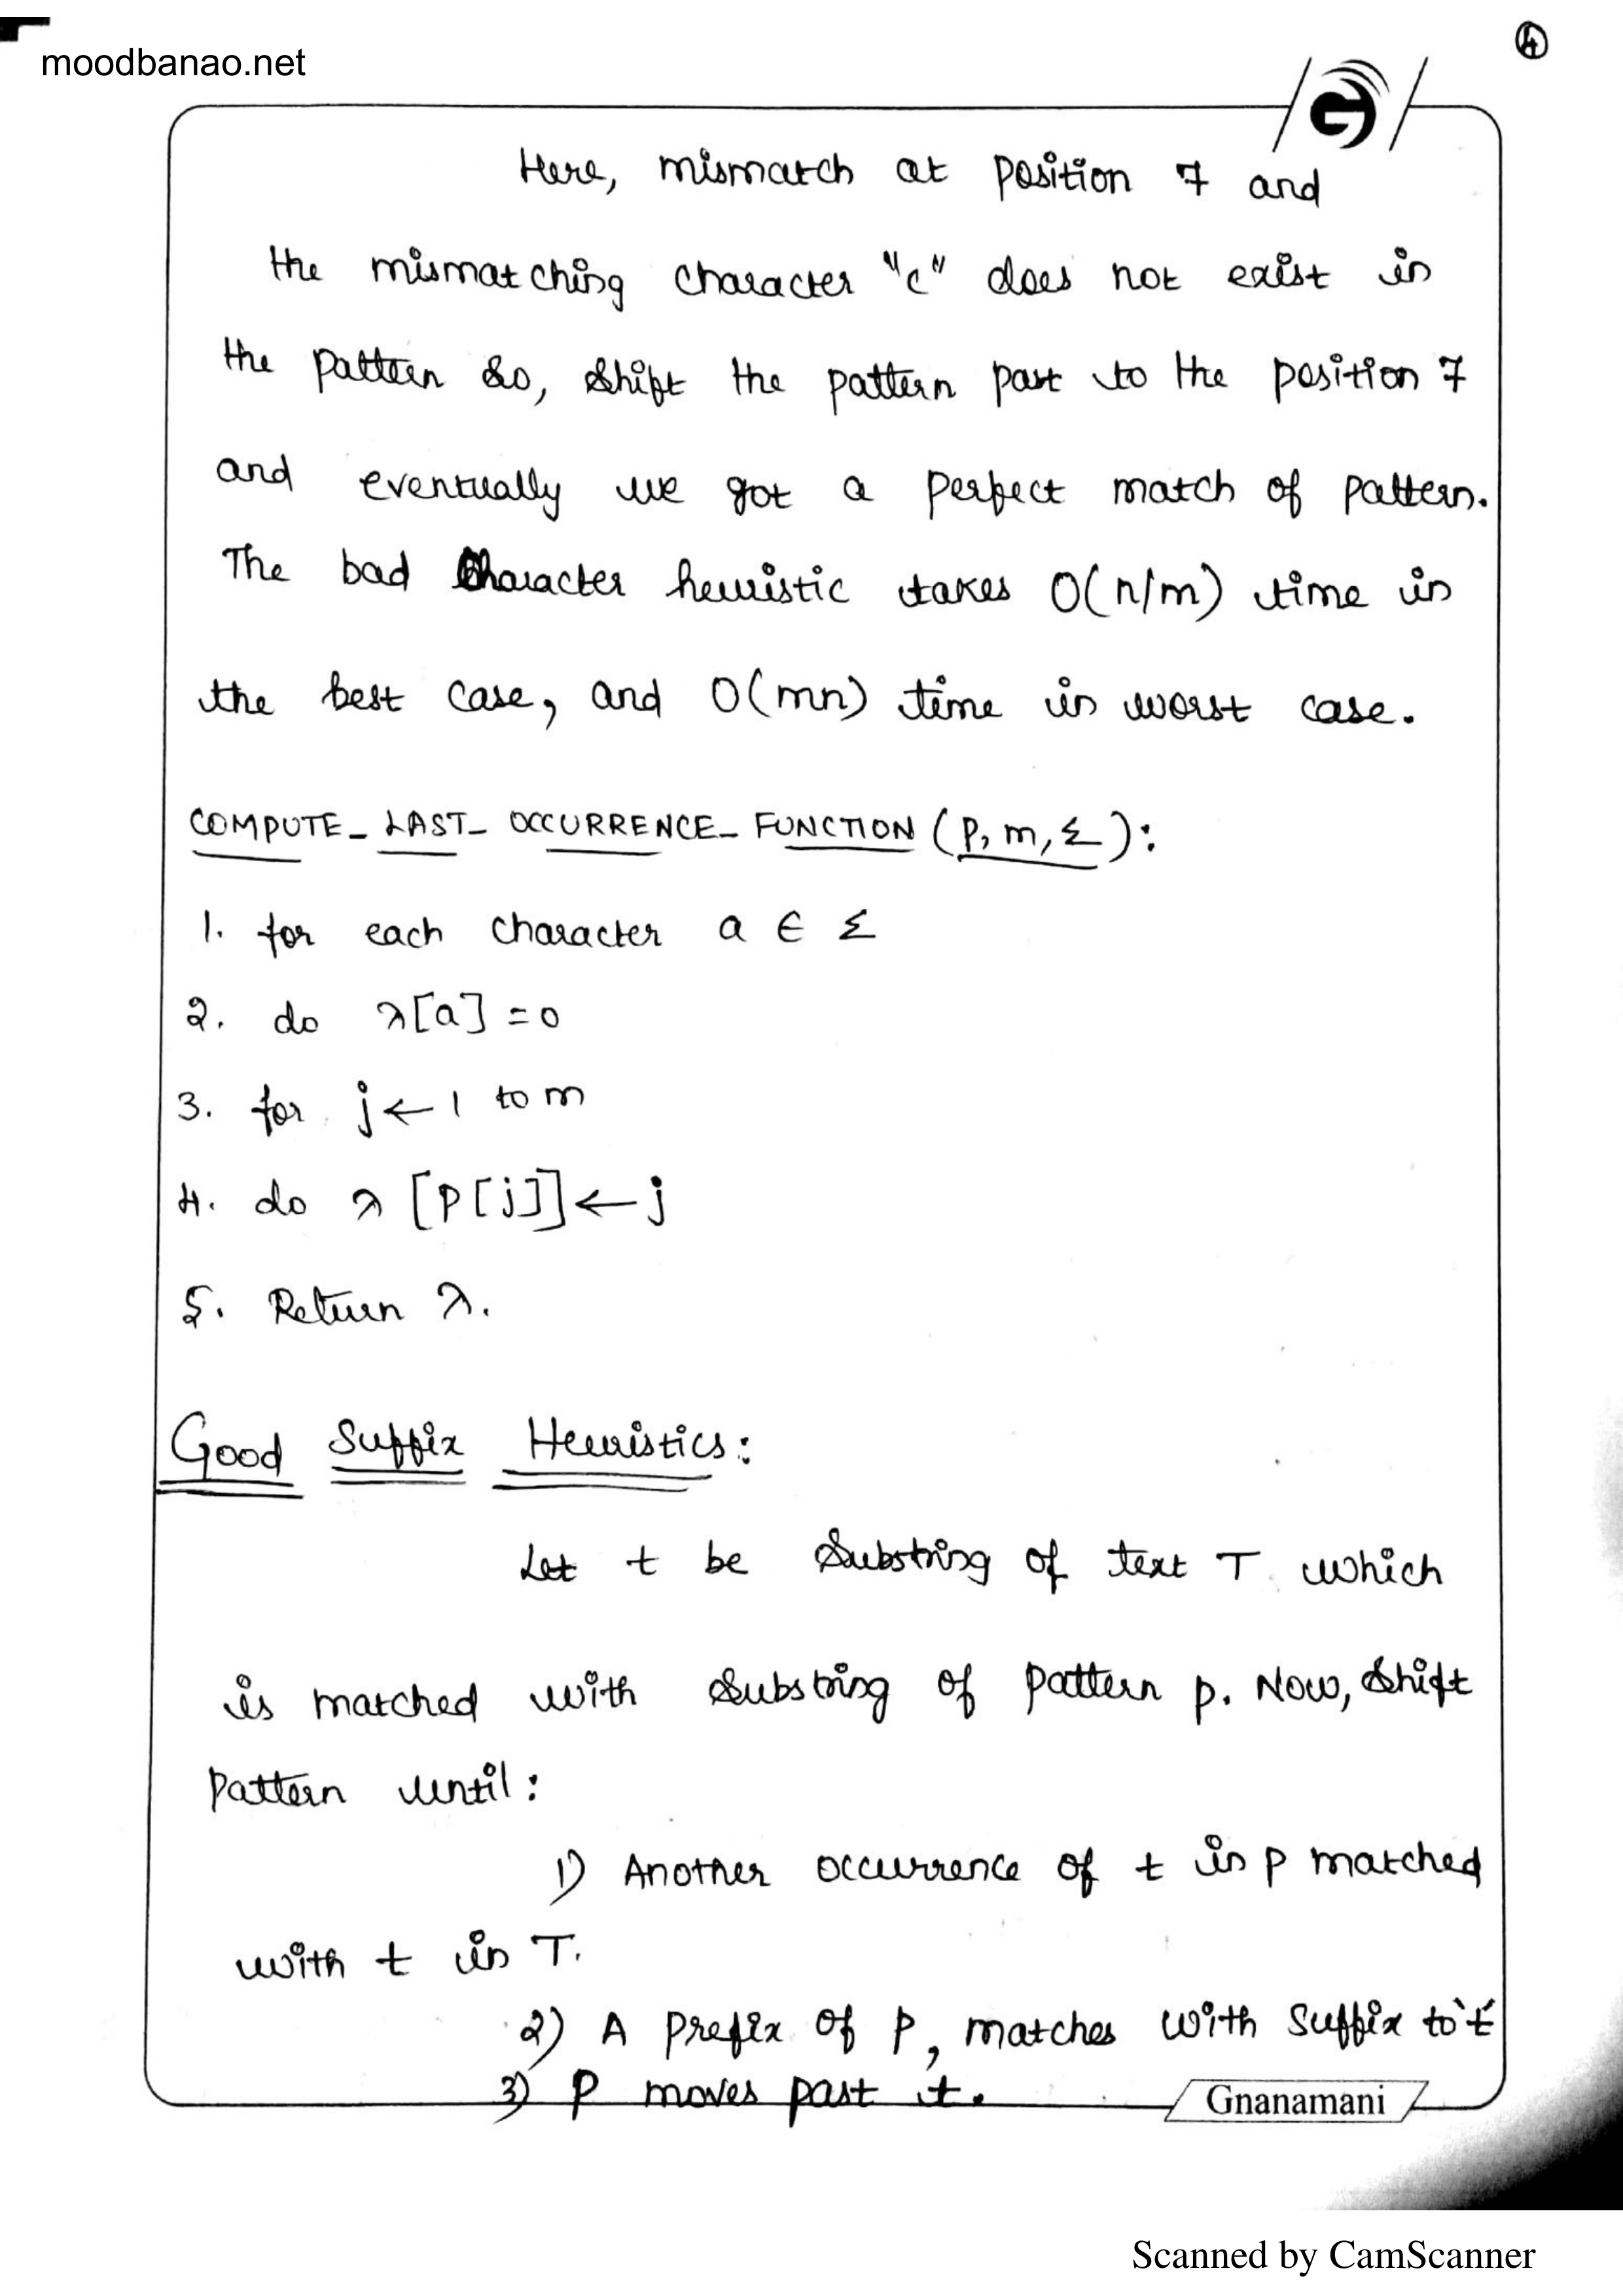 moodbanao.net
4
Here, mismatch at position 7 and
the mismatching character "c" does not exist in
the pattern so, shift the pattern past to the position 7
and eventually we got a perfect match of pattern.
The bad character heuristic takes O(n/m) time in
the best case, and O(mn) time in worst case.
COMPUTE_LAST_OCCURRENCE_FUNCTION (P, m, Σ):
1. for each character a ∈ Σ
2. do λ[a] = 0
3. for j ← 1 to m
4. do λ [P[j]] ← j
5. Return λ.
Good Suffix Heuristics:
Let t be substring of text T which
is matched with substring of pattern p. Now, shift
pattern until:
1) Another occurrence of t in p matched
with t in T.
2) A prefix of p, matches with suffix to 't'
3) P moves past t.
Gnanamani
Scanned by CamScanner